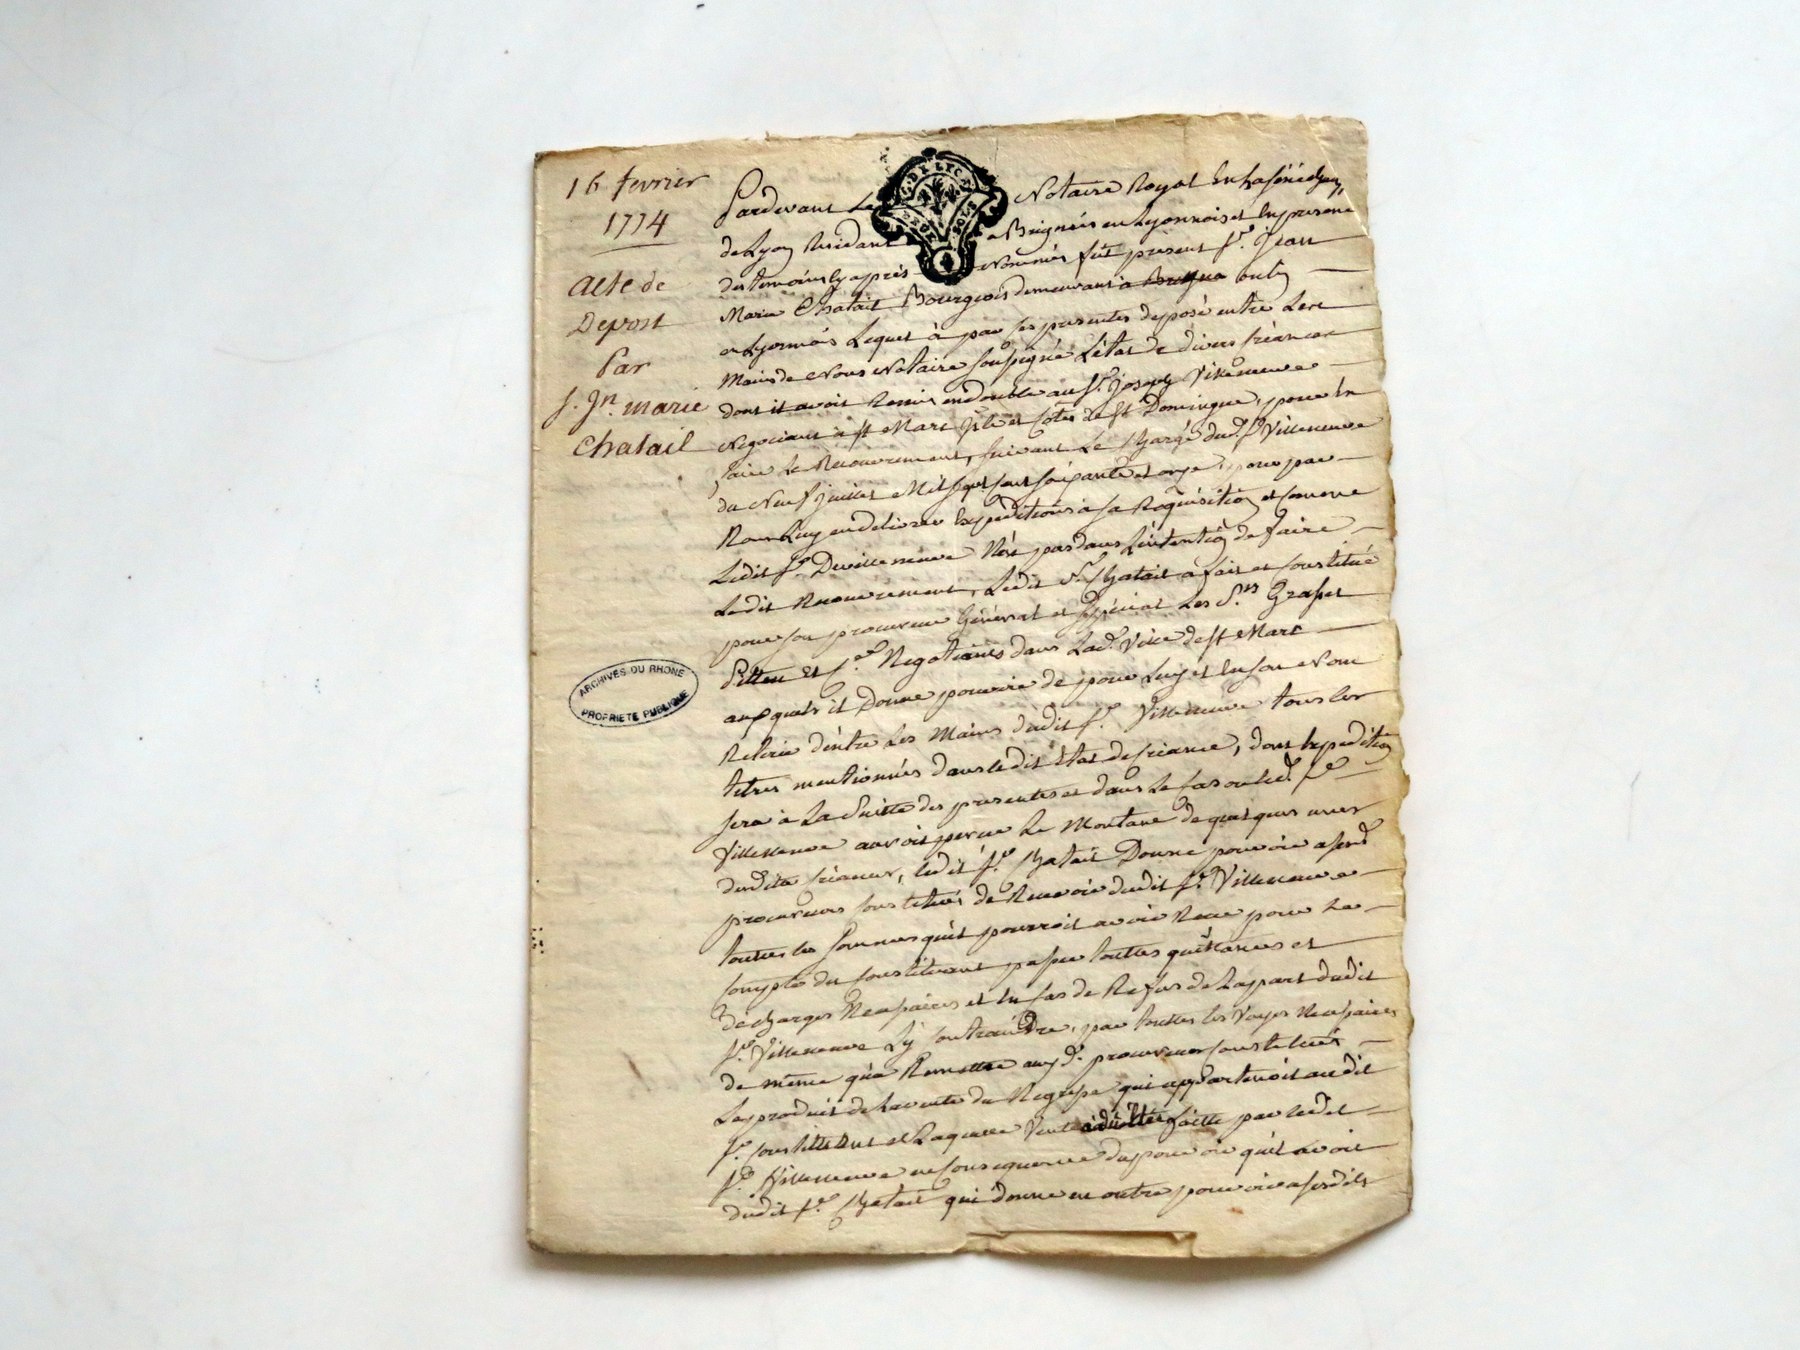 16 fevrier
1774
Acte de
Depost
Par
S. Jn. marie
Chatail
ARCHIVES DU RHONE
PROPRIETE PUBLIQUE
G. DE LYON
SOLS
Pardevant Le Notaire Royal En La sénéchau
de Lyon Residant a Brignais en Lyonnois et En presence
des temoins cy après Nommés fût présent Sr. Jean
Marie Chatail Bourgeois demeurant a
en Lyonnois Lequel à par ses presentes deposé entre Les
Mains de Nous Notaire soussigné L'état de divers Créances
dont il avoit Remis un double au Sr. Joseph Villeneuve
Negociant a St Marc Isle et Côtes de St Domingue, pour En
faire Le Recouvrement, suivant Le Chargé dud. Sr Villeneuve
du Neuf juillet Mil sept cent soixante et onze, pour par
Nous Luy en delivrer Expeditions à sa Requisition et comme
Ledit Sr. Devilleneuve N'est pas dans L'intention de faire
Ledit Recouvrement, Ledit Sr. Chatail a fait et constitué
pour son procureur Général et Spécial Les Srs
et Negotiants dans Lad. Ville de St Marc
auxquels il Donne pouvoir de pour Luy et En son Nom
Retirer d'entre Les Mains dudit Sr. Villeneuve tous les
titres mentionnés dans ledit Etat de Créance, dont Expedition
sera à La Suitte des presentes et dans Le cas ou led. Sr
Villeneuve auroit perçu Le Montant de quelques unes
desdites Créances, ledit Sr. Chatail Donne pouvoir a sesd.
procureurs constitués de Recevoir dudit Sr. Villeneuve
toutes les sommes qu'il pourroit avoir Reçu pour Le
Compte du constituant passer touttes quittances et
décharges Necessaires et En Cas de Refus de La part dudit
Sr. Villeneuve L'y Contraindre, par touttes les Voyes Necessaires
de même qu'a Remettre auxd. procureurs constitués
Le produit de La vente du Negre qui appartenoit audit
Sr. Constituant et Laquelle Vente faitte par ledit
Sr. Villeneuve en Consequence du pouvoir qu'il avoit
dudit Sr. Chatail qui donne en outre pouvoir a sesdits